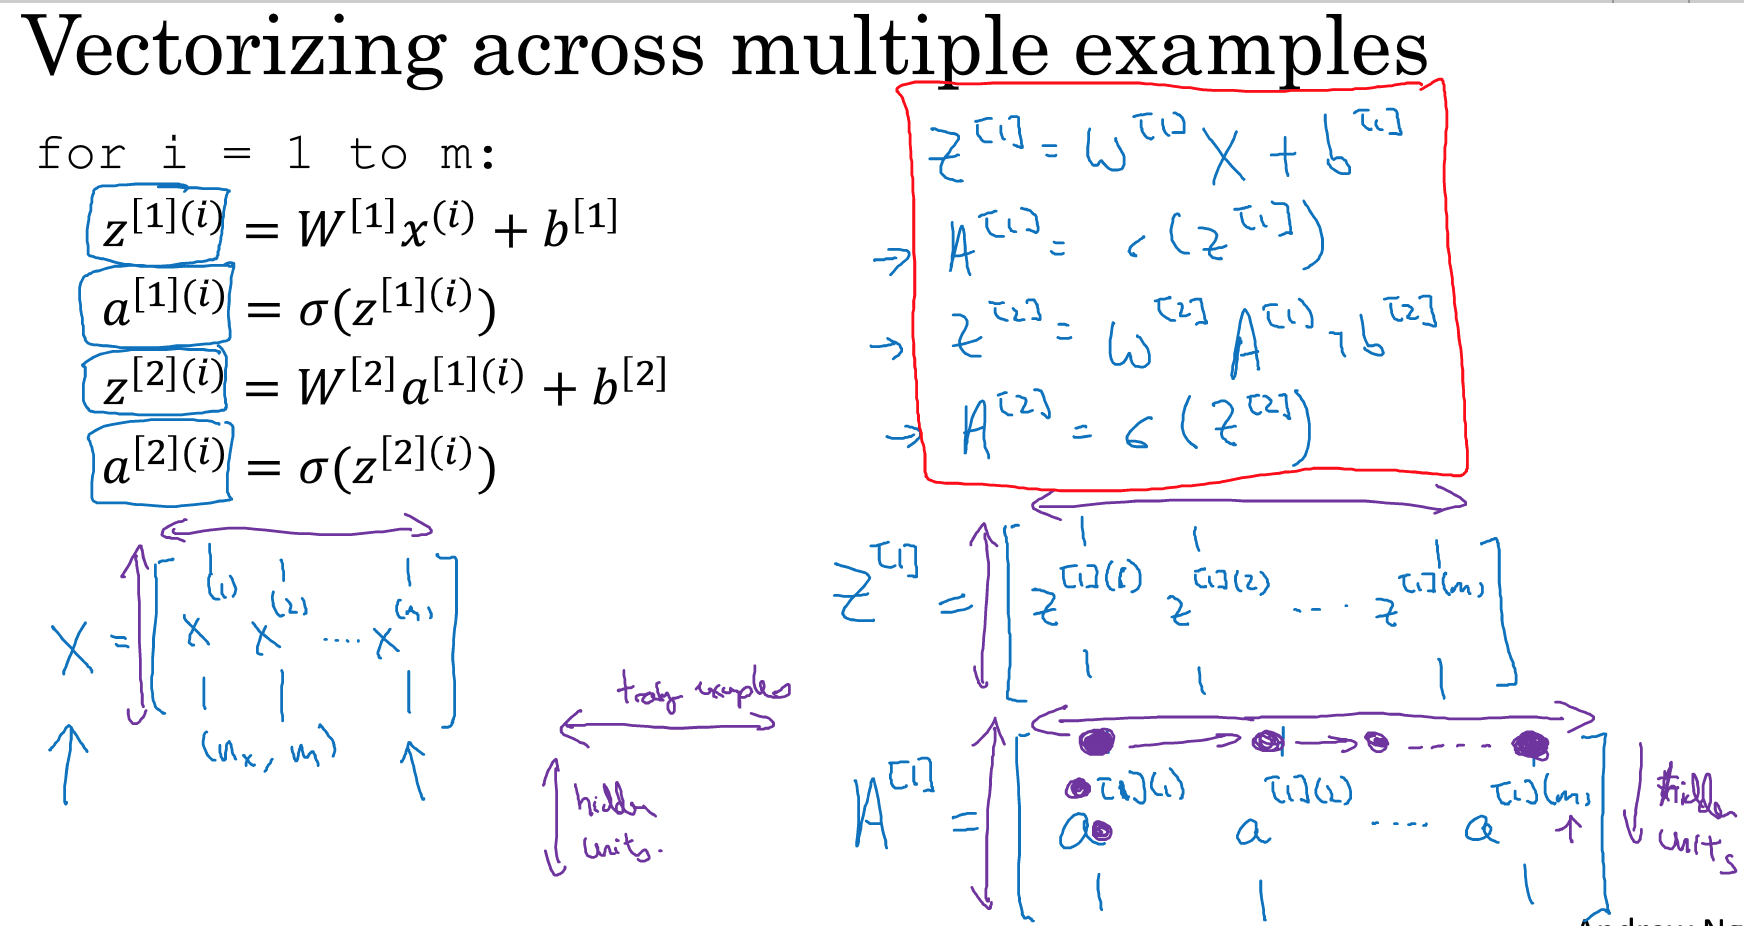 Vectorizing across multiple examples
for i = 1 to m:
z[1](i) = W[1]x(i) + b[1]
a[1](i) = σ(z[1](i))
z[2](i) = W[2]a[1](i) + b[2]
a[2](i) = σ(z[2](i))
Z[1] = W[1] X + b[1]
→ A[1] = σ(Z[1])
→ Z[2] = W[2] A[1] + b[2]
→ A[2] = σ(Z[2])
X = [x(1) x(2) .... x(m)]
(nx, m)
examples
hidden
units.
Z[1] = [z[1](1) z[1](2) ... z[1](m)]
A[1] = [a[1](1) a[1](2) .... a[1](m)]
hidden
units
Andrew Ng